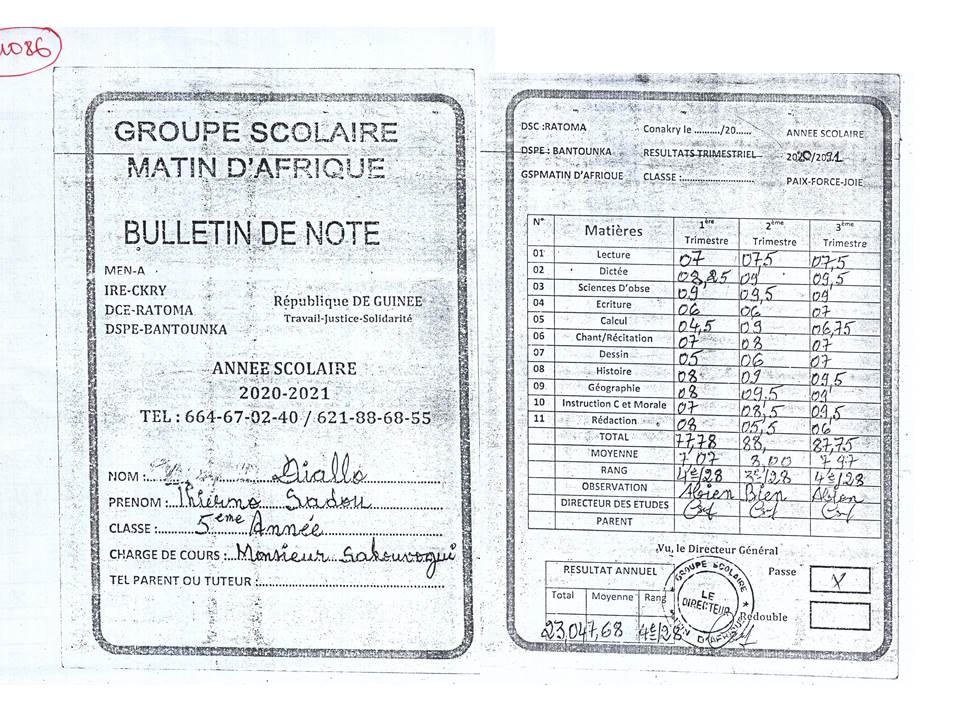 1086
GROUPE SCOLAIRE
MATIN D'AFRIQUE
BULLETIN DE NOTE
MEN-A
IRE-CKRY
DCE-RATOMA
DSPE-BANTOUNKA
République DE GUINEE
Travail-Justice-Solidarité
ANNEE SCOLAIRE
2020-2021
TEL : 664-67-02-40 / 621-88-68-55
NOM :............ Diallo
PRENOM : Thierno Sadou
CLASSE :........5eme Année
CHARGE DE COURS :..Monsieur Sakouvogui
TEL PARENT OU TUTEUR :........................................
DSC :RATOMA Conakry le ........../20...... ANNEE SCOLAIRE
DSPE : BANTOUNKA RESULTATS TRIMESTRIEL 2020/2021
GSPMATIN D'AFRIQUE CLASSE :........................... PAIX-FORCE-JOIE
N° Matières 1ère Trimestre 2ème Trimestre 3ème Trimestre
01 Lecture 07 07,5 07,5
02 Dictée 03,25 09 09,5
03 Sciences D'obse 09 09,5 09
04 Ecriture 06 06 07
05 Calcul 04,5 09 06,75
06 Chant/Récitation 07 08 07
07 Dessin 05 06 07
08 Histoire 08 09 09,5
09 Géographie 08 09,5 09
10 Instruction C et Morale 07 08,5 09,5
11 Rédaction 08 05,5 06
TOTAL 77,78 88, 87,75
MOYENNE 7 07 8,00 7 97
RANG 4e/28 3e/28 4e/28
OBSERVATION ABien Bien ABien
DIRECTEUR DES ETUDES
PARENT
Vu, le Directeur Général
RESULTAT ANNUEL Passe X
Total Moyenne Rang
Redouble
23,04 7,68 4e/28
GROUPE SCOLAIRE
LE
DIRECTEUR
MATIN D'AFRIQUE